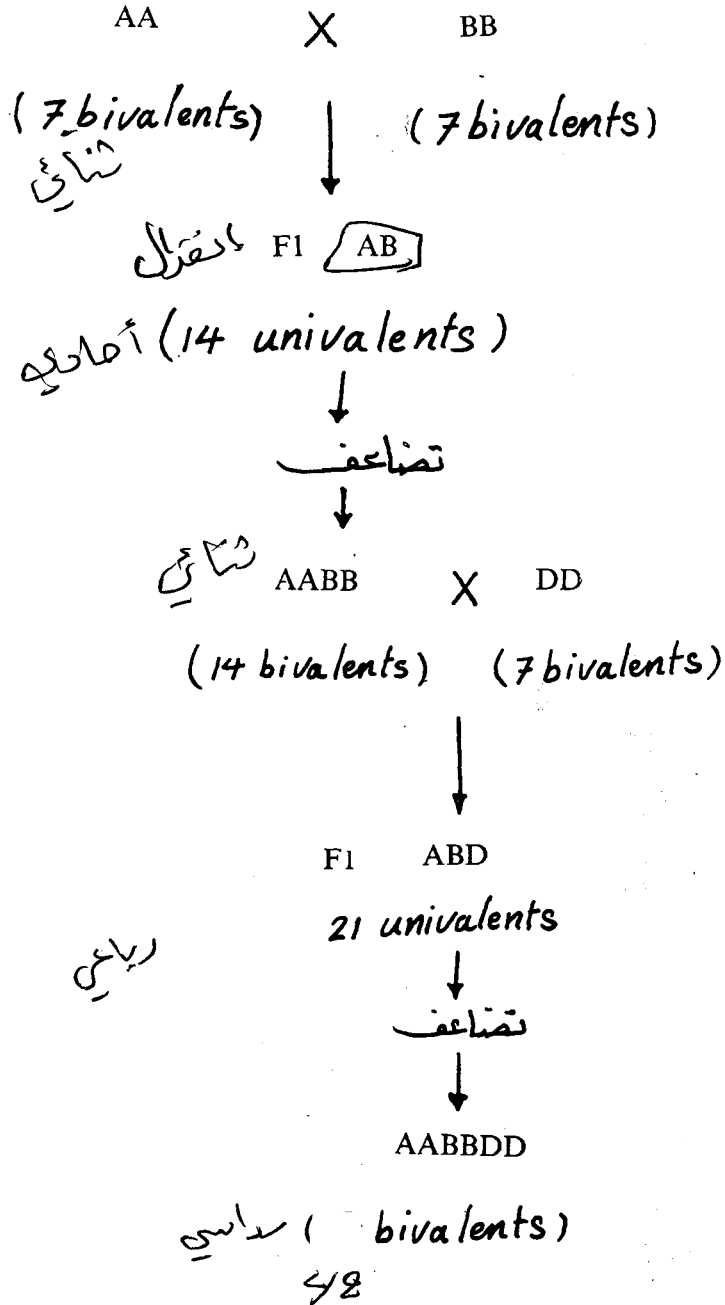 AA X BB
(7 bivalents) (7 bivalents)
ثنائي
F1 AB
أحادي (14 univalents)
تضاعف
ثنائي AABB X DD
(14 bivalents) (7 bivalents)
F1 ABD
21 univalents
رباعي
تضاعف
AABBDD
سداسي ( bivalents)
42